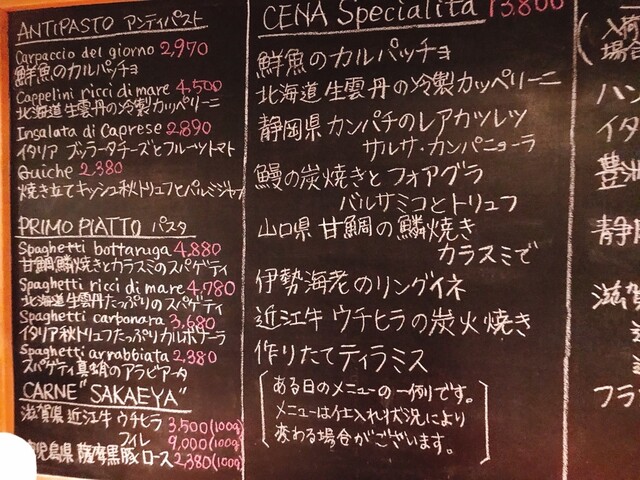 ANTIPASTO アンティパスト
Carpaccio del giorno 2,970
鮮魚のカルパッチョ
Cappelini ricci di mare 4,500
北海道生雲丹の冷製カッペリーニ
Insalata di Caprese 2,890
イタリア ブッラータチーズとフルーツトマト
Quiche 2,380
焼き立てキッシュ秋トリュフとパルミジャノ
PRIMO PIATTO パスタ
Spaghetti bottaruga 4,880
甘鯛鱗焼きとカラスミのスパゲティ
Spaghetti ricci di mare 4,780
北海道生雲丹たっぷりのスパゲティ
Spaghetti carbonara 3,680
イタリア秋トリュフたっぷりカルボナーラ
Spaghetti arrabbiata 2,380
スパゲティ真蛸のアラビアータ
CARNE "SAKAEYA"
滋賀県近江牛 ウチヒラ 3,500(100g)
フィレ 9,000(100g)
鹿児島県 薩摩黒豚ロース 2,380(100g)
CENA Specialita 13,800
鮮魚のカルパッチョ
北海道生雲丹の冷製カッペリーニ
静岡県カンパチのレアカツレツ
サルサ・カンパニョーラ
鰻の炭焼きとフォアグラ
バルサミコとトリュフ
山口県 甘鯛の鱗焼き
カラスミで
伊勢海老のリングイネ
近江牛ウチヒラの炭火焼き
作りたてティラミス
ある日のメニューの一例です。
メニューは仕入れ状況により
変わる場合がございます。
入荷
場合
ハン
イタ
豊洲
静岡
滋賀
フラ